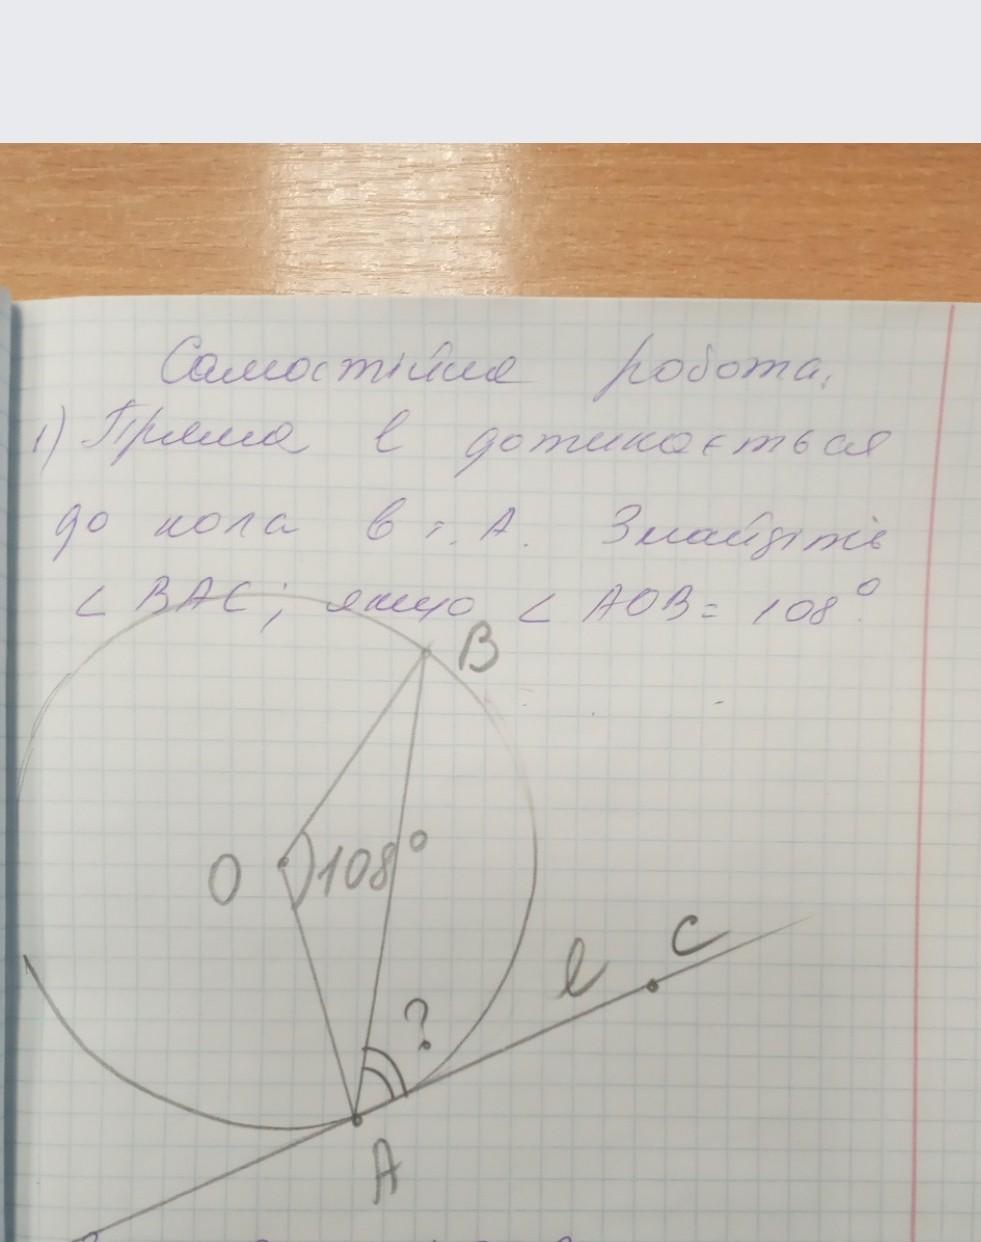 Самостійна робота.
1) Пряма l дотикається
до кола в т. А. Знайдіть
∠ ВАС, якщо ∠ АОВ = 108°.
B
O 108°
C
l
?
A